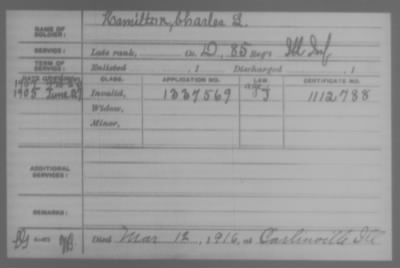 NAME OF SOLDIER: Hamilton, Charles L.
SERVICE: Late rank, Co. D, 85 Reg't Ill Inf
TERM OF SERVICE: Enlisted , 1 Discharged , 1
DATE OF FILING. CLASS. APPLICATION NO. LAW. CERTIFICATE NO.
1905 June 29 Invalid, 1337569 1112788
Widow,
Minor,
ADDITIONAL SERVICES:
REMARKS:
Died Mar 12, 1916, at Carlinville Ill